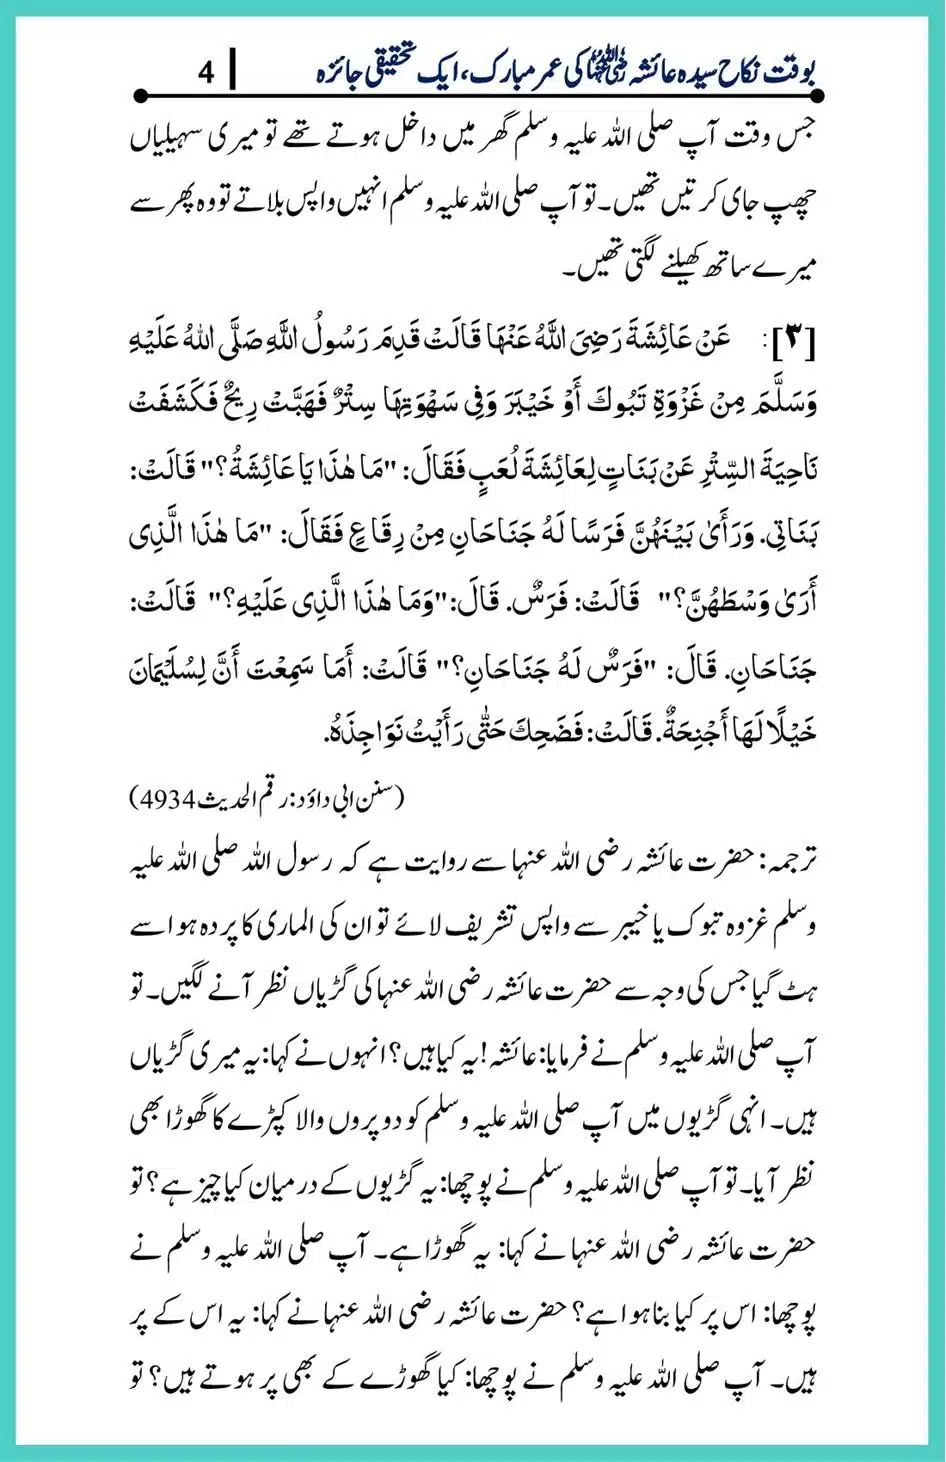 بوقت نکاح سیدہ عائشہ رضی اللہ عنہا کی عمر مبارک، ایک تحقیقی جائزہ | 4
جس وقت آپ صلی اللہ علیہ وسلم گھر میں داخل ہوتے تھے تو میری سہیلیاں
چھپ جای کرتیں تھیں۔ تو آپ صلی اللہ علیہ وسلم انہیں واپس بلاتے تو وہ پھر سے
میرے ساتھ کھیلنے لگتی تھیں۔
[۳]: عَنْ عَائِشَةَ رَضِيَ اللَّهُ عَنْهَا قَالَتْ قَدِمَ رَسُولُ اللَّهِ صَلَّى اللهُ عَلَيْهِ
وَسَلَّمَ مِنْ غَزْوَةِ تَبُوكَ أَوْ خَيْبَرَ وَفِي سَهْوَتِهَا سِتْرٌ فَهَبَّتْ رِيحٌ فَكَشَفَتْ
نَاحِيَةَ السِّتْرِ عَنْ بَنَاتٍ لِعَائِشَةَ لُعَبٍ فَقَالَ: "مَا هٰذَا يَا عَائِشَةُ؟" قَالَتْ:
بَنَاتِي. وَرَأَىٰ بَيْنَهُنَّ فَرَسًا لَهُ جَنَاحَانِ مِنْ رِقَاعٍ فَقَالَ: "مَا هٰذَا الَّذِي
أَرَىٰ وَسْطَهُنَّ؟" قَالَتْ: فَرَسٌ. قَالَ: "وَمَا هٰذَا الَّذِي عَلَيْهِ؟" قَالَتْ:
جَنَاحَانِ. قَالَ: "فَرَسٌ لَهُ جَنَاحَانِ؟" قَالَتْ: أَمَا سَمِعْتَ أَنَّ لِسُلَيْمَانَ
خَيْلًا لَهَا أَجْنِحَةٌ. قَالَتْ: فَضَحِكَ حَتّٰى رَأَيْتُ نَوَاجِذَهُ.
(سنن ابی داؤد: رقم الحدیث 4934)
ترجمہ: حضرت عائشہ رضی اللہ عنہا سے روایت ہے کہ رسول اللہ صلی اللہ علیہ
وسلم غزوہ تبوک یا خیبر سے واپس تشریف لائے تو ان کی الماری کا پردہ ہوا سے
ہٹ گیا جس کی وجہ سے حضرت عائشہ رضی اللہ عنہا کی گڑیاں نظر آنے لگیں۔ تو
آپ صلی اللہ علیہ وسلم نے فرمایا: عائشہ! یہ کیا ہیں؟ انہوں نے کہا: یہ میری گڑیاں
ہیں۔ انہی گڑیوں میں آپ صلی اللہ علیہ وسلم کو دو پروں والا کپڑے کا گھوڑا بھی
نظر آیا۔ تو آپ صلی اللہ علیہ وسلم نے پوچھا: یہ گڑیوں کے درمیان کیا چیز ہے؟ تو
حضرت عائشہ رضی اللہ عنہا نے کہا: یہ گھوڑا ہے۔ آپ صلی اللہ علیہ وسلم نے
پوچھا: اس پر کیا بنا ہوا ہے؟ حضرت عائشہ رضی اللہ عنہا نے کہا: یہ اس کے پر
ہیں۔ آپ صلی اللہ علیہ وسلم نے پوچھا: کیا گھوڑے کے بھی پر ہوتے ہیں؟ تو